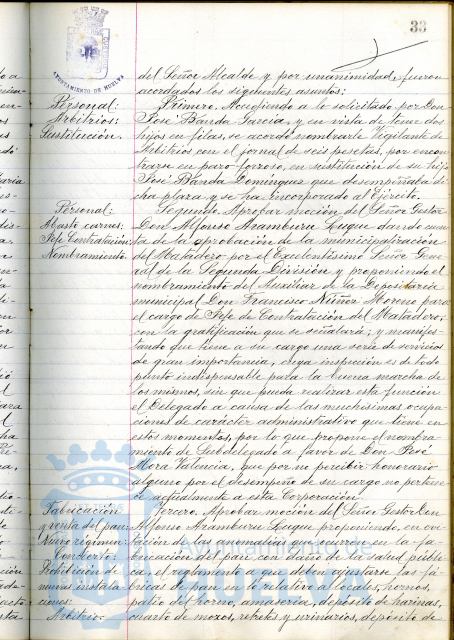 33
AYUNTAMIENTO DE HUELVA
del Señor Alcalde y por unanimidad, fueron
acordados los siguientes asuntos:
Personal:
Arbitrios:
Sustitución.
Primero. Accediendo a lo solicitado por Don
José Banda García, y en vista de tener dos
hijos en filas, se acordó nombrarle Vigilante de
Arbitrios con el jornal de seis pesetas, por encon
trarse en paro forzoso, en sustitución de su hijo
José Banda Domínguez que desempeñaba di
cha plaza y se ha incorporado al Ejército.
Personal:
Abasto carnes:
Jefe Contratación:
Nombramiento.
Segundo. Aprobar moción del Señor Gestor
Don Alfonso Aramburu Luque dando cuen
ta de la aprobación de la municipalización
del Matadero por el Excelentísimo Señor Gene
ral de la Segunda División y proponiendo el
nombramiento del Auxiliar de la Depositaria
municipal Don Francisco Núñez Moreno para
el cargo de Jefe de Contratación del Matadero,
con la gratificación que se señalará; y manifes
tando que tiene a su cargo una serie de servicios
de gran importancia, cuya inspección es de todo
punto indispensable para la buena marcha de
los mismos, sin que pueda realizar esta función
el Delegado a causa de las muchísimas ocupa
ciones de carácter administrativo que tiene en
estos momentos, por lo que propone el nombra
miento de Subdelegado a favor de Don José
Mora Valencia, que por no percibir honorario
alguno por el desempeño de su cargo no pertene
ce actualmente a esta Corporación.
Fabricación
y venta del pan:
Nuevo régimen:
Concierto:
Prohibición de
nuevas instala
ciones:
Arbitrio:
Tercero. Aprobar moción del Señor Gestor Don
Alfonso Aramburu Luque proponiendo, en evi
tación de las anomalías que ocurren en la fa
bricación del pan con daño de la salud públi
ca, el reglamento a que deben ajustarse las fá
bricas de pan en lo relativo a locales, hornos,
patio del horno, amasería, depósito de harinas,
cuarto de mozos, retretes y urinarios, depósito de
Ayuntamiento de
HUELVA